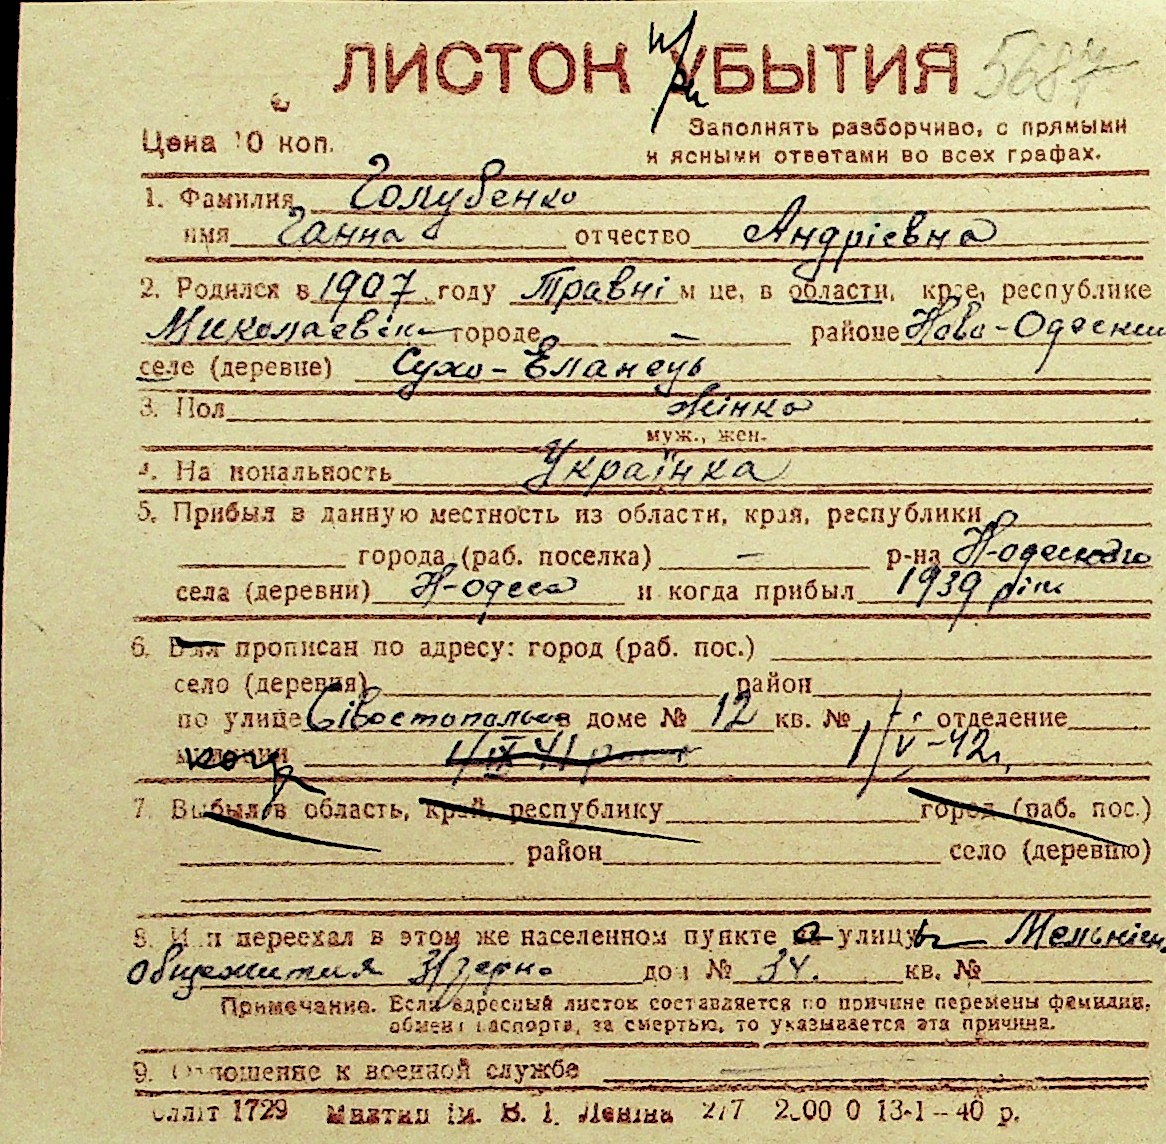 ЛИСТОК УБЫТИЯ 5687
Цена 10 коп.
Заполнять разборчиво, с прямыми
и ясными ответами во всех графах.
1. Фамилия Голубенко
имя Ганна отчество Андріевна
2. Родился в 1907 году Травні м-це, в области, крае, республике
Миколаевск городе — районе Ново-Одеский
селе (деревне) Сухо-Еланець
3. Пол жінка
муж., жен.
4. Национальность Українка
5. Прибыл в данную местность из области, края, республики
города (раб. поселка) — р-на Н-одеского
села (деревни) Н-одеса и когда прибыл 1939 рік
6. Был прописан по адресу: город (раб. пос.)
село (деревня) район
по улице Сівостопольс в доме № 12 кв. № отделение
милиции 1/IX 41 1/V-42
7. Выбыл в область, край, республику город (раб. пос.)
район село (деревню)
8. Или переехал в этом же населенном пункте на улицу Мельніен
общежития З/зерно дом № 34. кв. №
Примечание. Если адресный листок составляется по причине перемены фамилии,
обмена паспорта, за смертью, то указывается эта причина.
9. Отношение к военной службе —
Оллліт 1729 Миктип ім. В. І. Леніна 277 2000 0 13-I-40 р.